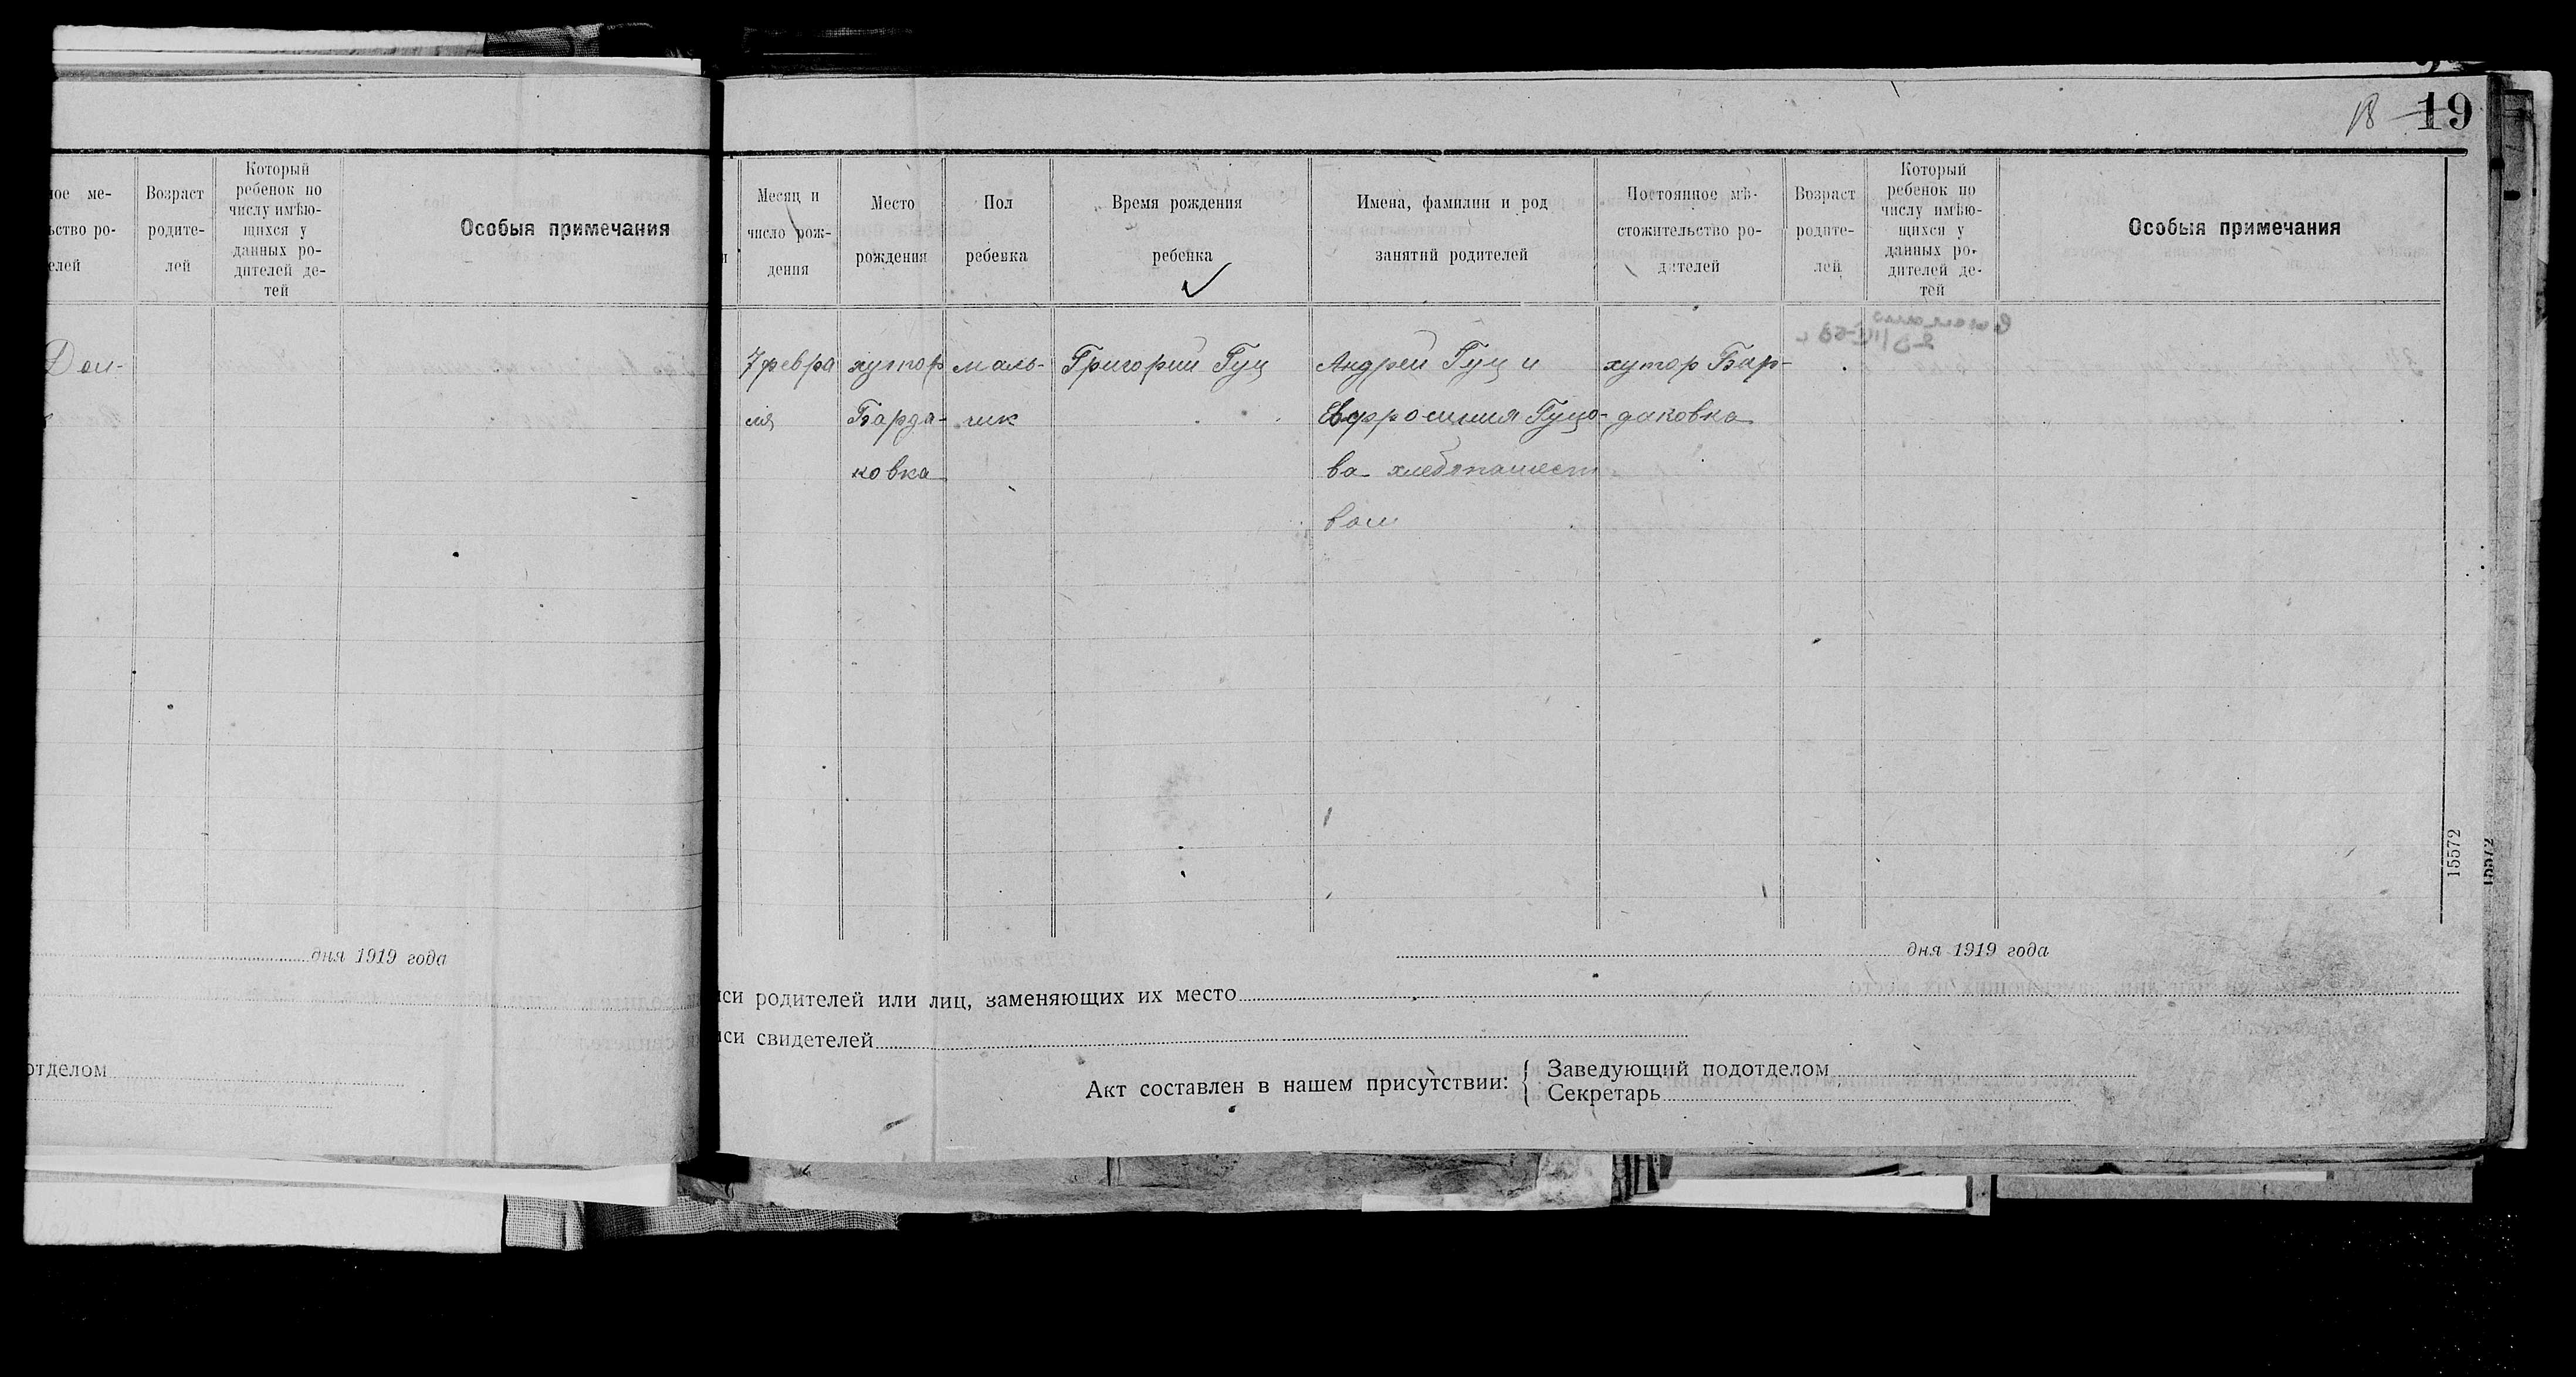 18 19
ное ме-
ьство ро-
елей
Возраст
родите-
лей
Который
ребенок по
числу имѣю-
щихся у
данных ро-
дителей де-
тей
Особыя примечания
Дом-
дня 1919 года
отделом
Месяц и
число рож-
дения
Место
рождения
Пол
ребенка
Время рождения
ребенка
Имена, фамилии и род
занятий родителей
Постоянное мѣ-
стожительство ро-
дителей
Возраст
родите-
лей
Который
ребенок по
числу имѣю-
щихся у
данных ро-
дителей де-
тей
Особыя примечания
7 февра хутор маль- Григорий Гуц Андрей Гуц и хутор Бар-
ля Барда- чик Евфросиния Гуцо- даковка
ковка ва хлебопашест
вом
15572
15572
дня 1919 года
иси родителей или лиц, заменяющих их место
иси свидетелей
Акт составлен в нашем присутствии:
Заведующий подотделом
Секретарь